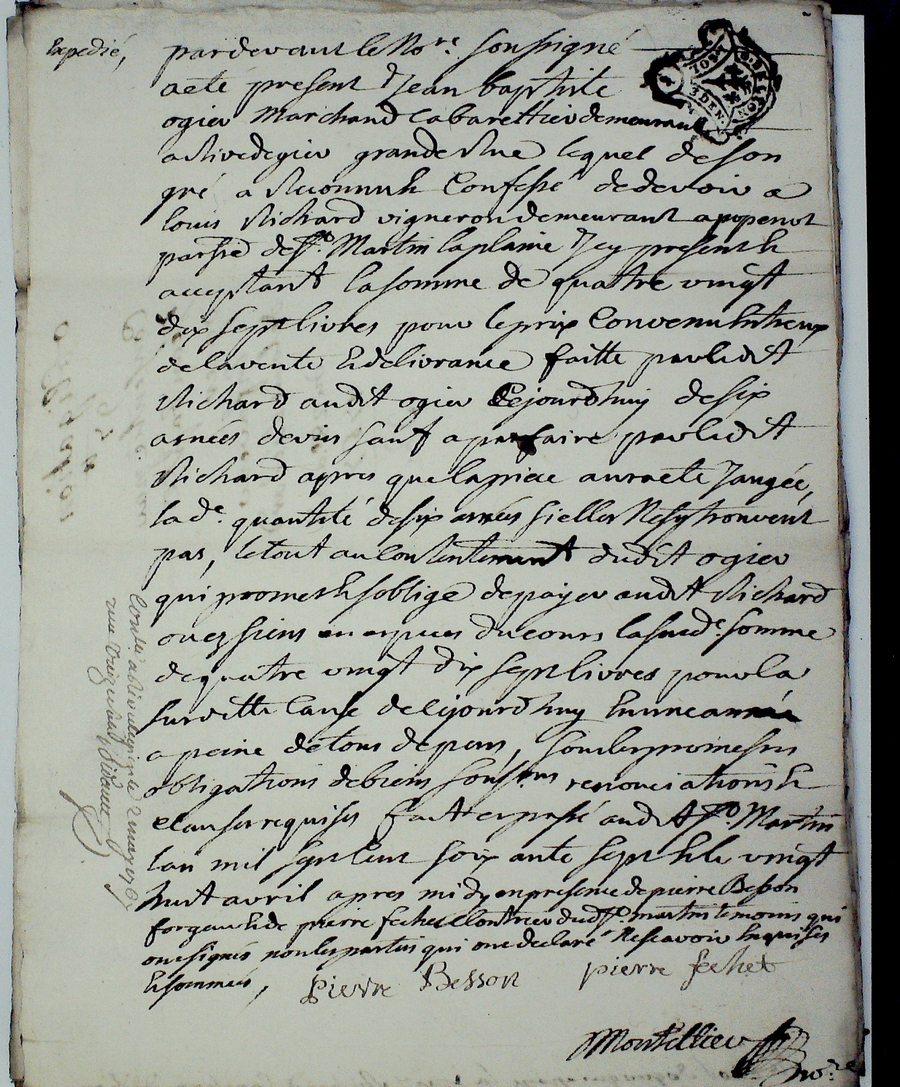 Expedié,
pardevant le No.re soussigné
a eté present Jean baptiste
ogier Marchand Cabarettier demeurant
a Rivedegier grande Rue lequel de son
gré a Reconnu & Confessé de devoir a
louis Richard vigneron demeurant a
parsse de St. Martin laplaine Icy present &
acceptant la somme de quatre vingt
dix sept livres pour le prix Convenu Entreux
de la vente & delivrance faitte par ledit
Richard audit ogier Cejourdhuy de six
asnées de vin sauf a parfaire par ledit
Richard apres que la piece aura eté Jaugée,
lade. quantité de six asnées si elles Ne sy trouvent
pas, le tout au Contentement dudit ogier
qui promet & soblige de payer audit Richard
ou es siens en especes du cours la susde. somme
de quatre vingt dix sept livres pour la
susditte Cause de Cejourdhuy En une année
a peine de tous depens, sous les promesses
obligations de biens renonciations &
clauses requises fait et passé audit St. Martin
lan mil sept Cent soix ante sept & le vingt
huit avril apres midy en presence de pierre Besson
forgeur & de pierre fechet dudt. St. martin temoins qui
ont signés non les parties qui ont declaré Ne scavoir Enquises
& sommées,
pierre Besson pierre fechet
Montellier
No.re
Conlé a Rivedegier le 2 may 1767
3 DEN.